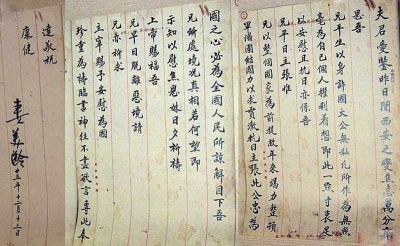 夫君愛鑒昨日聞西安之變焦急萬分竊
思吾
兄平生以身許國大公無私凡所作為無絲
毫為自己個人權利着想即此一點寸衷足
以安慰且抗日亦係吾
兄平日主張惟
兄以整個國家為前提故年來竭力整頓
軍備團結國力以求貫徹抗日主張此公忠為
國之心必為全國人民所諒解目下吾
兄所處境況真相若何望即
示知以慰焦思妹日夕祈禱
上帝賜福吾
兄早日脫離惡境請
兄亦祈求
主宰賜予安慰為國
珍重為禱臨書神往不盡欲言專此奉
達敬祝
康健
妻美齡
廿五年十二月十三日